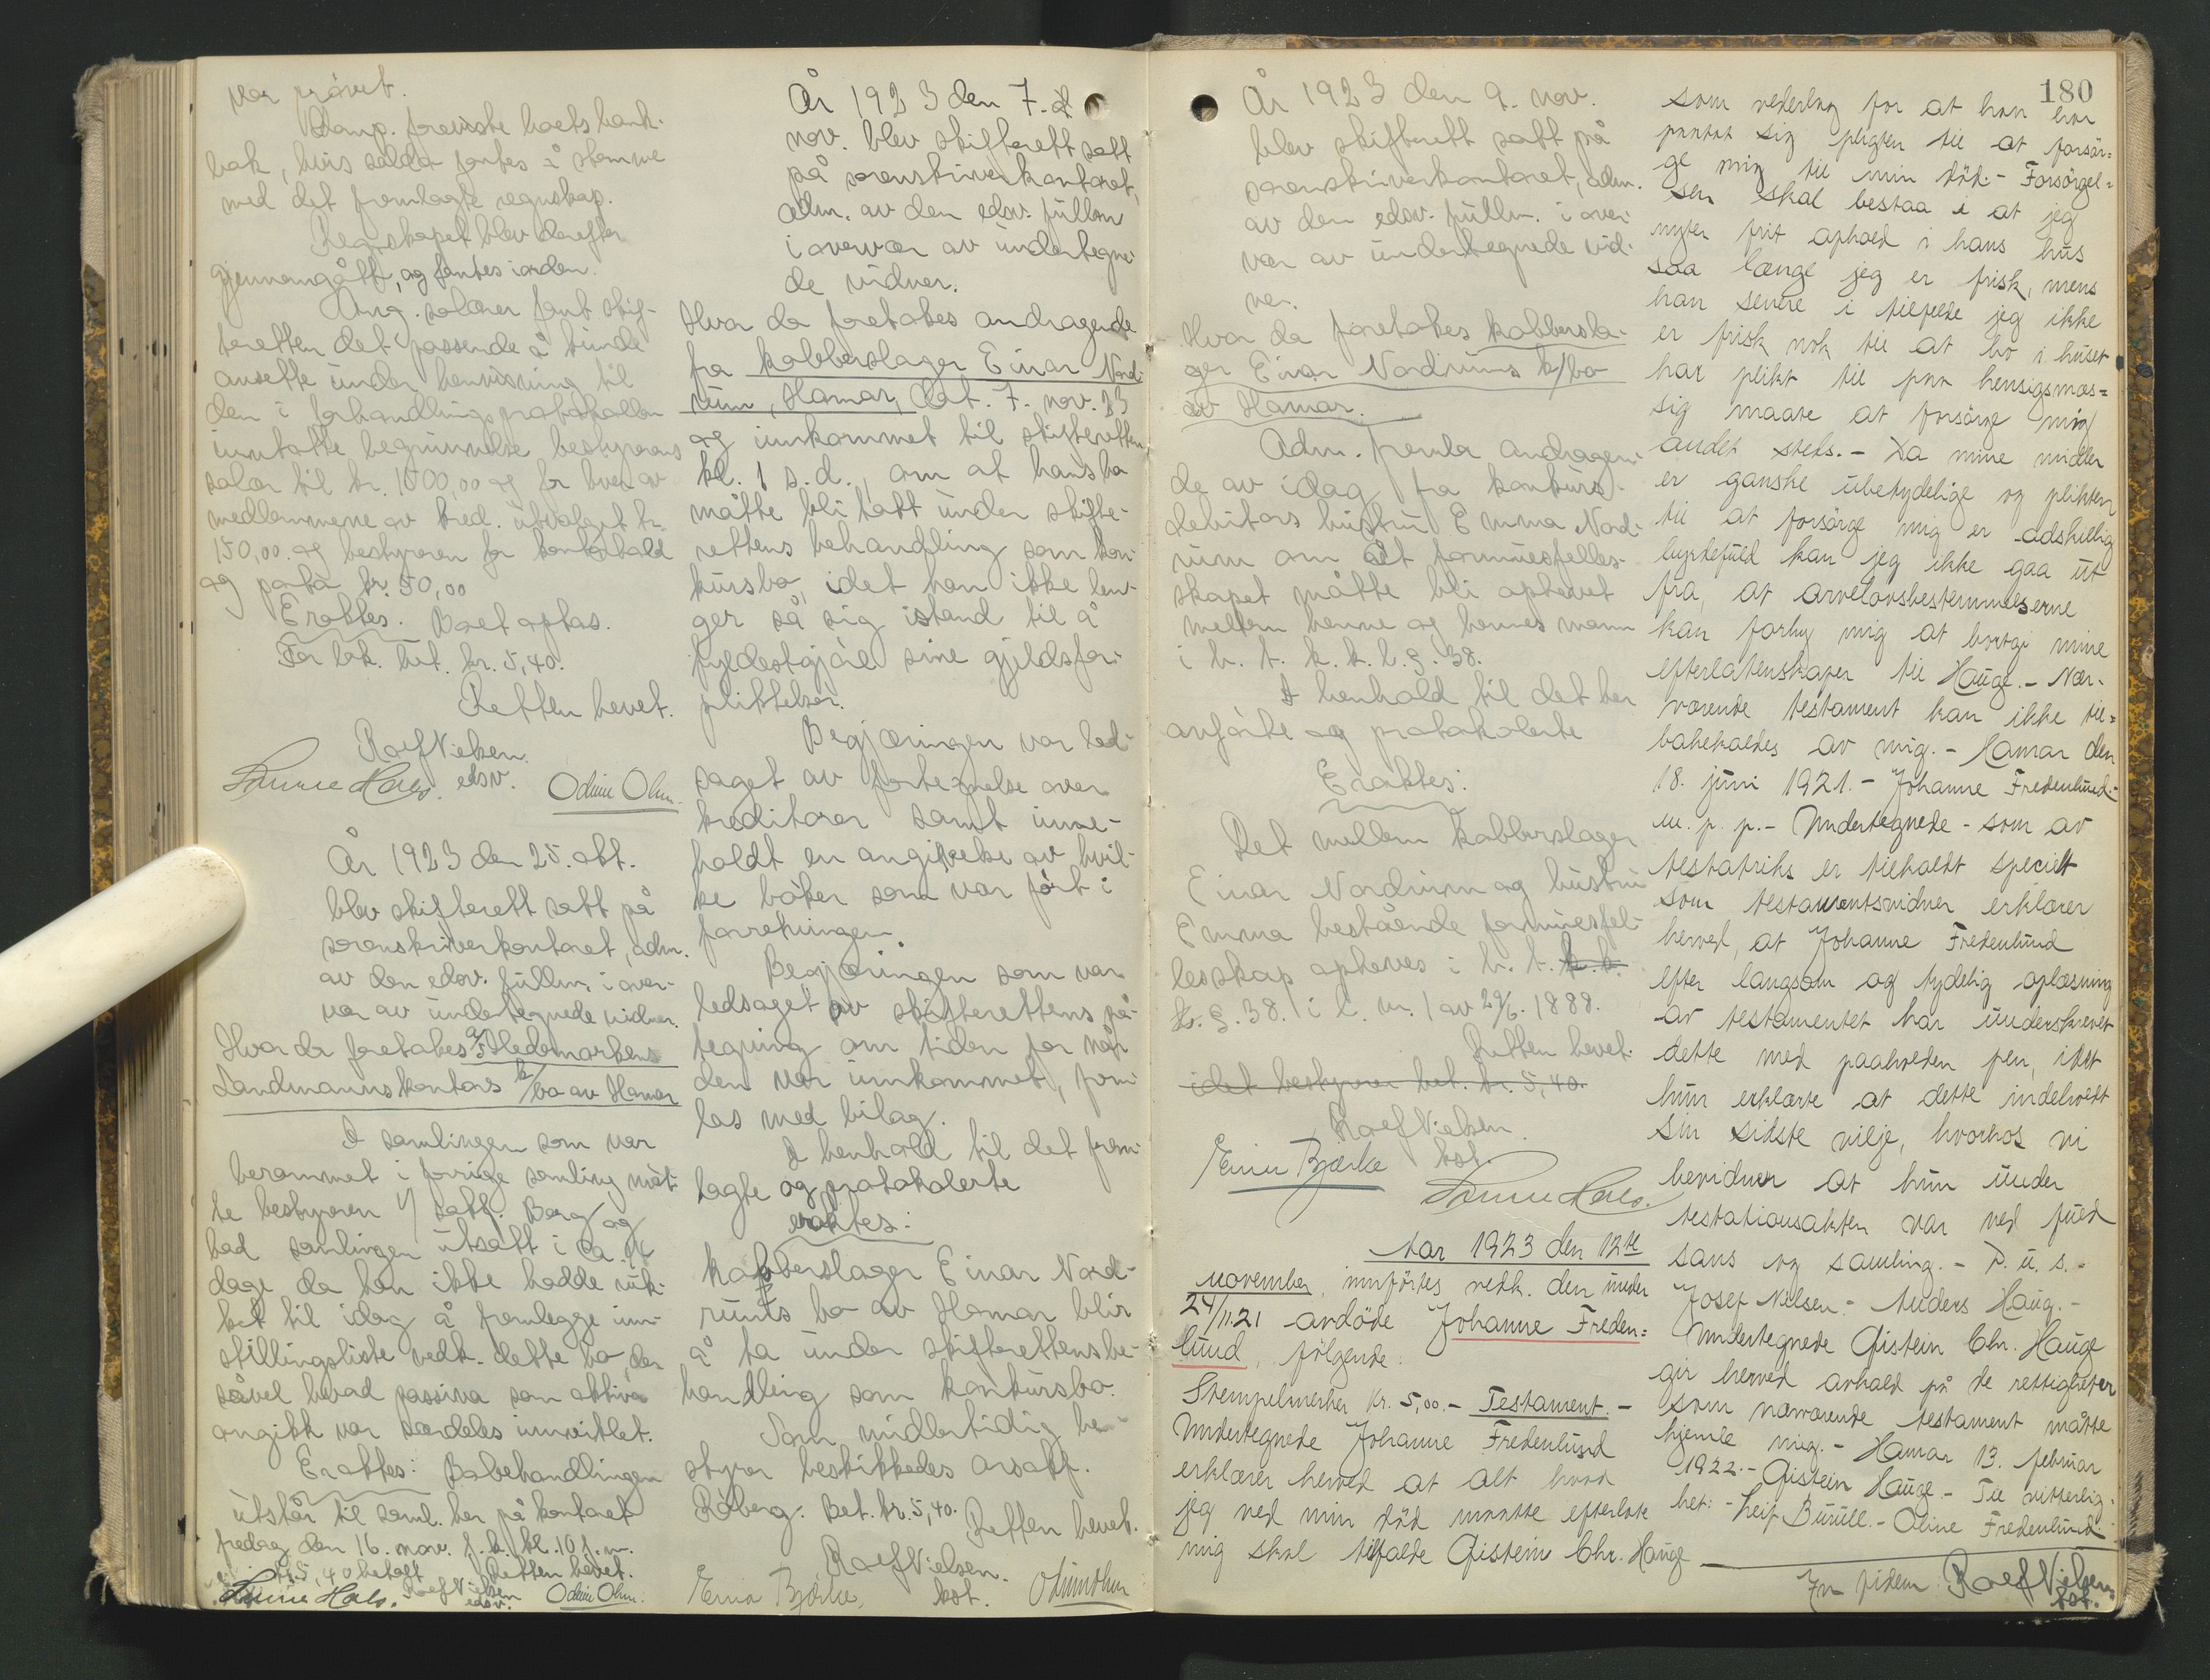 var prøvet.
Komp. foreviste boets bank-
bok, hvis saldo fantes å stemme
med det fremlagte regnskap.
Regnskapet blev derefter
gjennemgått, og fantes iorden.
Ang. salærer fant skif-
teretten det passende å kunde
ansette under henvisning til
den i forhandlingsprotokollen
inntatte begrunnelse bestyrerens
salær til kr. 1500,00 og for hver av
medlemmene av kred. utvalget kr.
150,00. og bestyreren for kontorhold
og porto kr. 50,00
Eraktes: Boet optas.
For bok. bet. kr. 5,40.
Retten hevet.
Roef Nielsen.
edsv.
Odine Olm.
År 1923 den 25. okt.
blev skifterett satt på
sorenskriverkontoret, adm.
av den edsv. fullm. i over-
vær av undertegnede vidner.
Hvor da foretokes A/S Hedemarkens
Landmannskontors k/bo av Hamar
I samlingen som var
berammet i forrige samling møt-
te bestyreren o/ saff. Berg og
bad samlingen utsatt i ca. 14
dage da han ikke hadde ruk-
ket til idag å fremlegge inn-
stillingsliste vedk. dette bo, der
såvel hvad passiva som aktiva
angikk var særdeles innviklet.
Eraktes: Bobehandlingen
utstår til saml. her på kontoret
fredag den 16. nov. f. k. kl. 10 f. m.
kr. 5,40 betalt Retten hevet.
Roef Nielsen
edsv.
Odine Olm.
År 1923 den 7. d
nov. blev skifterett satt
på sorenskriverkontoret,
adm. av den edsv. fullm
i overvær av undertegne-
de vidner.
Hvor da foretokes andragende
fra kobberslager Einar Nord-
rum, Hamar, dat. 7. nov. 23
og innkommet til skifteretten
kl. 1 s. d., om at hans bo
måtte bli tatt under skifte-
rettens behandling som kon-
kursbo, idet han ikke len-
ger så sig istand til å
fyldestgjøre sine gjeldsfor-
pliktelser.
Begjæringen var led-
saget av fortegnelse over
kreditorer samt inne-
holdt en angivelse av hvil-
ke bøker som var ført i
forretningen.
Begjæringen som var
ledsaget av skifterettens på-
tegning om tiden for når
den var innkommet, frem-
las med bilag.
I henhold til det frem-
lagte og protokolerte
eraktes:
Kobberslager Einar Nord-
rums bo av Hamar blir
å ta under skifterettens be-
handling som konkursbo.
Som midlertidig be-
styrer beskikkedes orsakf.
Röberg. Bet. kr. 5,40. Retten hevet.
Roef Nielsen.
kst.
Einar Bjørke.
180
År 1923 den 9. nov.
blev skifterett satt på
sorenskriverkontoret, adm.
av den edsv. fullm. i over-
vær av undertegnede vid-
ner.
Hvor da foretokes kobbersla-
ger Einar Nordrums k/bo
av Hamar.
Adm. fremla andragen-
de av idag fra konkurs-
debitors hustru Emma Nord-
rum om at formuesfelles-
skapet måtte bli ophevet
mellem henne og hennes mann
i h. t. k. k. l. §. 38.
I henhold til det her
anførte og protokolerte
Eraktes:
Det mellem kobberslager
Einar Nordrum og hustru
Emma bestående formuesfel-
lesskap opheves i h. t. k. k.
l. §. 38. i l. nr. 1 av 29/6. 1888.
Retten hevet.
idet bestyrer bet. kr. 5,40.
Roef Nielsen.
kst.
Einar Bjørke
Aar 1923 den 12te
november, innførtes vedk. den under
24/11.21 avdøde Johanne Freden=
lund, følgende:
Stempelmerker kr. 5,00.- Testament. -
Undertegnede Johanne Fredenlund
erklærer herved at alt hvad
jeg ved min død maatte efterlate
mig skal tilfalde Gistein Chr. Hauge
som vederlag for at han har
paatat sig pligten til at forsør=
ge mig til min død.- Forsørgel=
sen skal bestaa i at jeg
nyter frit ophold i hans hus
saa længe jeg er frisk, mens
han senere i tilfelde jeg ikke
er frisk nok til at bo i huset
har plikt til paa hensigsmæs=
sig maate at forsørge mig
andet steds.- Da mine midler
er ganske ubetydelige og plikten
til at forsørge mig er adskillig
byrdefuld kan jeg ikke gaa ut
fra, at arvelovsbestemmelserne
kan forby mig at bortgi mine
efterlatenskaper til Hauge.- Nær-
værende testament kan ikke til=
bakekaldes av mig.- Hamar den
18. juni 1921.- Johanne Fredenlund-
m. p. p.- Undertegnede - som av
testatriks er tilkaldt specielt
som testamentsvidner erklærer
herved, at Johanne Fredenlund
efter langsom og tydelig oplæsning
av testamentet har underskrevet
dette med paaholden pen, idet
hun erklærte at dette indeholdt
sin sidste vilje, hvorhos vi
bevidner at hun under
testationsakten var ved fuld
sans og samling.- D. u. s.-
Josef Nilsen.- Anders Haug.-
Undertegnede Gistein Chr. Hauge
gir herved avkald på de rettigheter
som nærværende testament måtte
hjemle mig.- Hamar 13. februar
1922.- Gistein Hauge.- Til vitterlig-
het:- Leif Buuell.- Oline Fredenlund
In fidem Roef Nielsen.
kst.